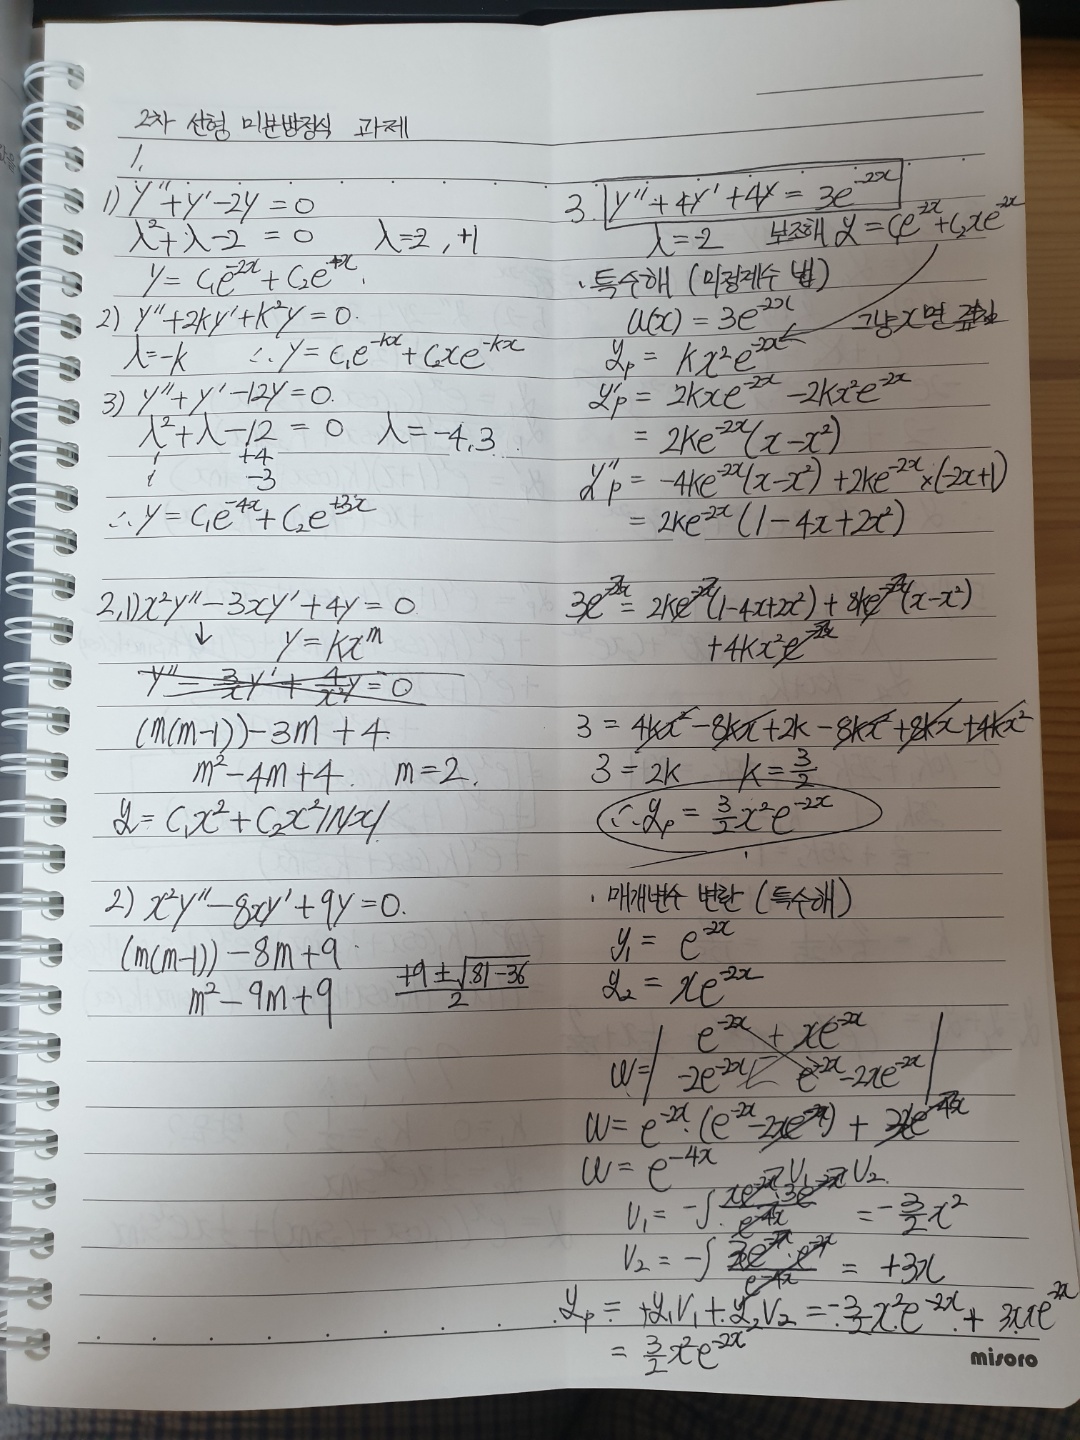 2차 선형 미분방정식 과제
1.
1) y''+y'-2y = 0
λ²+λ-2 = 0 λ=-2, +1
y = C₁e^{-2x}+C₂e^{+x}.
2) y''+2ky'+k²y = 0.
λ=-k ∴ y = C₁e^{-kx}+C₂xe^{-kx}
3) y''+y'-12y = 0.
λ²+λ-12 = 0 λ=-4,3
+4
-3
∴ y = C₁e^{-4x}+C₂e^{+3x}
2,1) x²y''-3xy'+4y = 0.
↓ y = kx^m
y''-3/x y'+4/x² y = 0
(m(m-1))-3m+4.
m²-4m+4. m=2.
y = C₁x²+C₂x²lNx/
2) x²y''-8xy'+9y = 0.
(m(m-1))-8m+9.
m²-9m+9 (+9±√(81-36))/2
3. y''+4y'+4y = 3e^{-2x}
λ=-2 보조해 y = C₁e^{-2x}+C₂xe^{-2x}
· 특수해 (미정계수 법)
u(x) = 3e^{-2x} 그냥 x면 겹침
y_p = kx²e^{-2x}
y'_p = 2kxe^{-2x} -2kx²e^{-2x}
= 2ke^{-2x}(x-x²)
y''_p = -4ke^{-2x}(x-x²)+2ke^{-2x}×(-2x+1)
= 2ke^{-2x}(1-4x+2x²)
3e^{-2x} = 2ke^{-2x}(1-4x+2x²)+8ke^{-2x}(x-x²)
+4kx²e^{-2x}
3 = 4kx²-8kx+2k-8kx²+8kx+4kx²
3 = 2k k = 3/2
∴ y_p = 3/2 x²e^{-2x}
· 매개변수 변란 (특수해)
y₁ = e^{-2x}
y₂ = xe^{-2x}
e^{-2x} + xe^{-2x}
W=| -2e^{-2x} e^{-2x}-2xe^{-2x} |
W = e^{-2x}·(e^{-2x}-2xe^{-2x}) + 2xe^{-4x}
W = e^{-4x}
V₁ V₂
V₁ = -∫ (xe^{-2x}·3e^{-2x})/e^{-4x} = -3/2 x²
V₂ = -∫ (3e^{-2x}·e^{-2x})/e^{-4x} = +3x
y_p = +y₁V₁+y₂V₂ = -3/2 x²e^{-2x} + 3x·xe^{-2x}
= 3/2 x²e^{-2x}
misoro